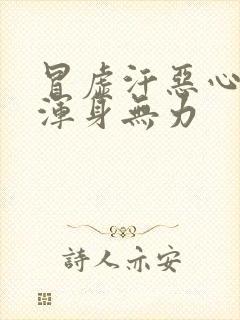 冒虛汗惡心
渾身無力
詩人亦安